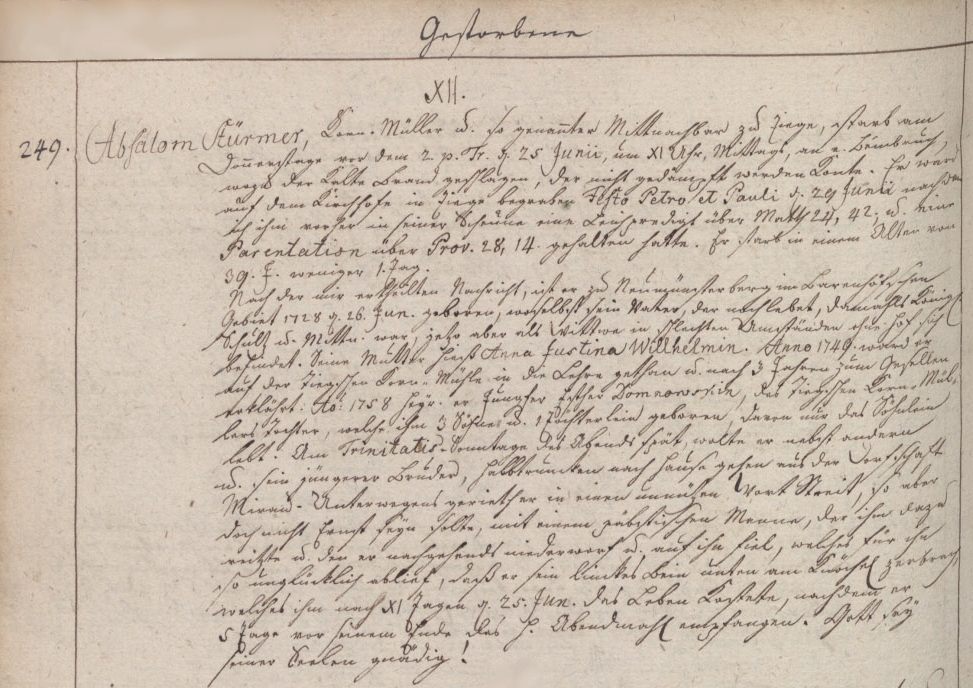 Gestorbene
XII.
249. Absalom Stürmer, Korn-Müller u. so genannter Mittnachbar zu Ziege, starb am
Donnerstage vor dem 2. p. Tr. d. 25 Junii, um XI Uhr, Mittags, an e. Beinbruch,
wozu der Kalte Brand geschlagen, der nicht gedämpft werden konte. Er ward
auf dem Kirchhofe in Ziege begraben Festo Petro et Pauli d. 29 Junii nachdem
ich ihm vorher in seiner Scheune eine Leichpredigt über Matth 24, 42. u. eine
Parentation über Prov. 28, 14. gehalten hatte. Er starb in einem Alter von
39. J. weniger 1. Tag.
Nach der mir ertheilten Nachricht, ist er zu Neumünsterberg im Bärenhöfschen
Gebiet 1728 d. 26. Jun. geboren, woselbst sein Vater, der noch lebet, damahls Königl
Schultz u. Mittn. war, jetzo aber als Wittwer in schlechten Umständen ohne Hof sich
befindet. Seine Mutter hiess Anna Justina Willhelmin. Anno 1749. ward er
auf der Ziegschen Korn-Mühle in die Lehre gethan u. nach 3 Jahren zum Gesellen
erklährt. Ao: 1758 heyr. er Jungfer Esther Domnowskin, des Ziegschen Korn-Mül-
lers Tochter, welche ihm 3 Söhne u. 1 Töchterlein geboren, davon nur das Söhnlein
lebt. Am Trinitatis-Sonntage des Abends spät, wolte er nebst andern
u. sein jüngerer Bruder, halbtruncken nach Hause gehen aus der Dorfschaft
Mirau. Unterwegens gerieth er in einen unnützen Wort Streit, so aber
doch nicht Ernst seyn solte, mit einem päbstischen Manne, der ihn dazu
reitzte u. den er nachgehends niederworf u. auf ihn fiel, welches für ihn
so unglücklich ablief, daß er sein linckes Bein unten am Knöchel zerbrach,
welches ihm nach XI Tagen d. 25. Jun. das Leben kostete, nachdem er
5 Tage vor seinem Ende das H. Abendmahl empfangen. Gott sey
seiner Seelen gnädig!